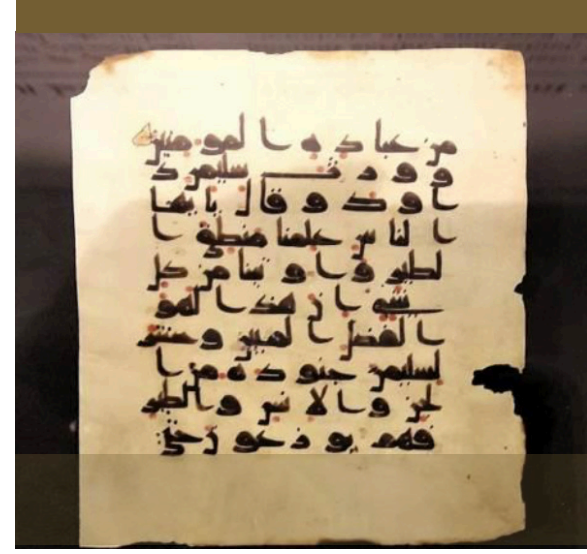 من عباده المومنين
وورث سليمن د
اود وقال يايها
الناس علمنا منطق ا
لطير واوتينا من كل
شيء ان هذا لهو
الفضل المبين وحشر
لسليمن جنوده من ا
لجن والانس والطير
فهم يوزعون حتى